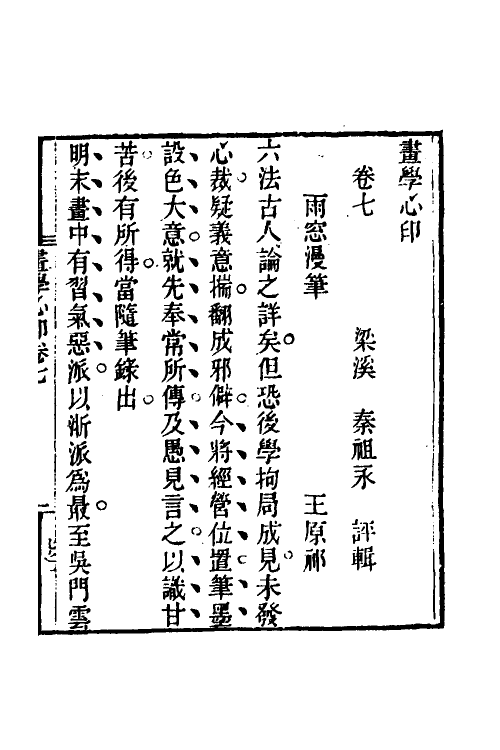 畫學心印
卷七　梁溪　秦祖永　評輯
雨窓漫筆　王原祁
六法古人論之詳矣但恐後學拘局成見未發
心裁疑義意揣翻成邪僻今將經營位置筆墨
設色大意就先奉常所傳及愚見言之以識甘
苦後有所得當隨筆錄出
明末畫中有習氣惡派以浙派爲最至吳門雲
畫學心印卷七